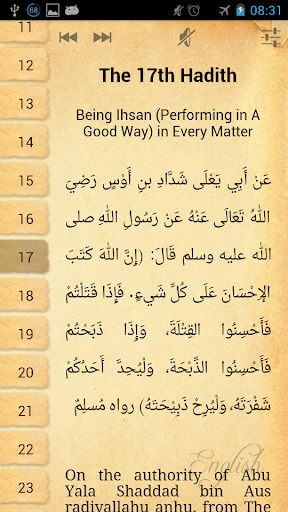 68
08:31
11
12
13
14
15
16
17
18
19
20
21
22
23
The 17th Hadith
Being Ihsan (Performing in A
Good Way) in Every Matter
عَنْ أَبِي يَعْلَى شَدَّادِ بنِ أَوْسٍ رَضِيَ
اللهُ تَعَالَى عَنْهُ عَنْ رَسُولِ اللهِ صلى
الله عليه وسلم قَالَ: (إِنَّ اللهَ كَتَبَ
الإِحْسَانَ عَلَى كُلِّ شَيءٍ. فَإِذَا قَتَلْتُمْ
فَأَحْسِنُوا القِتْلَةَ، وَإِذَا ذَبَحْتُمْ
فَأَحْسِنُوا الذِّبْحَةَ، وَلْيُحِدَّ أَحَدُكُمْ
شَفْرَتَهُ، وَلْيُرِحْ ذَبِيْحَتَهُ) رواه مُسلِمٌ
English
On the authority of Abu
Yala Shaddad bin Aus
radiyallahu anhu, from The